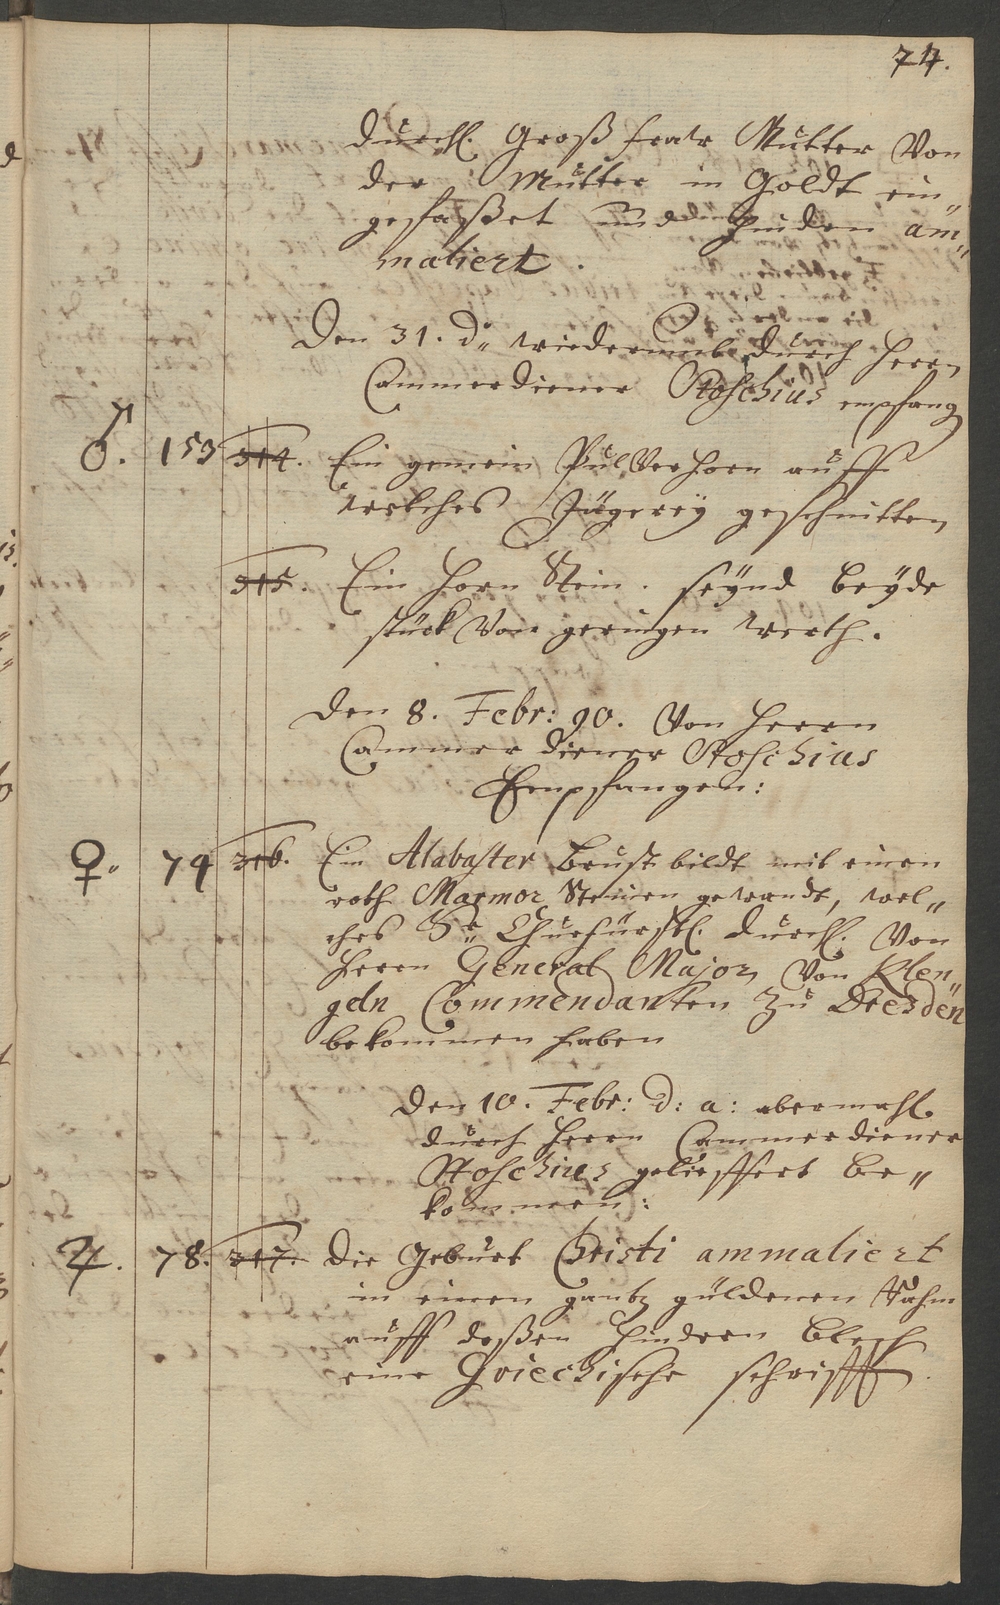 74.
Durchl. Groß fraw Mutter Von
der Mutter in Goldt ein„
gefaßet und hinden am„
maliert.
Den 31. d° wiederumb durch Herrn
Cammerdiener Stoschius empfang
♂. 153 314. Ein gemein Pulverhorn auff
welches Jägerey geschnitten
315. Ein Horn Stein. seÿnd beÿde
stück Von geringen werth.
Den 8. Febr: 90. Von Herrn
Cammer diener Stoschius
Empfangen:
♀. 79 316. Ein Alabaster Brust bildt mit einen
roth Marmor Steinen gewandt, wel„
ches Sr Churfürstl. Durchl. Von
Herrn General Major Von Klen„
geln Commendanten zu Dresden
bekommen haben
Den 10. Febr: d: a: abermahl
durch Herrn Cammerdiener
Stoschius gelieffert be„
kommen:
♃. 78. 317. Die Geburt Christi ammaliert
in einen gantz güldenen Rahm
auff deßen hindern Blech
eine Griechische schrifft.